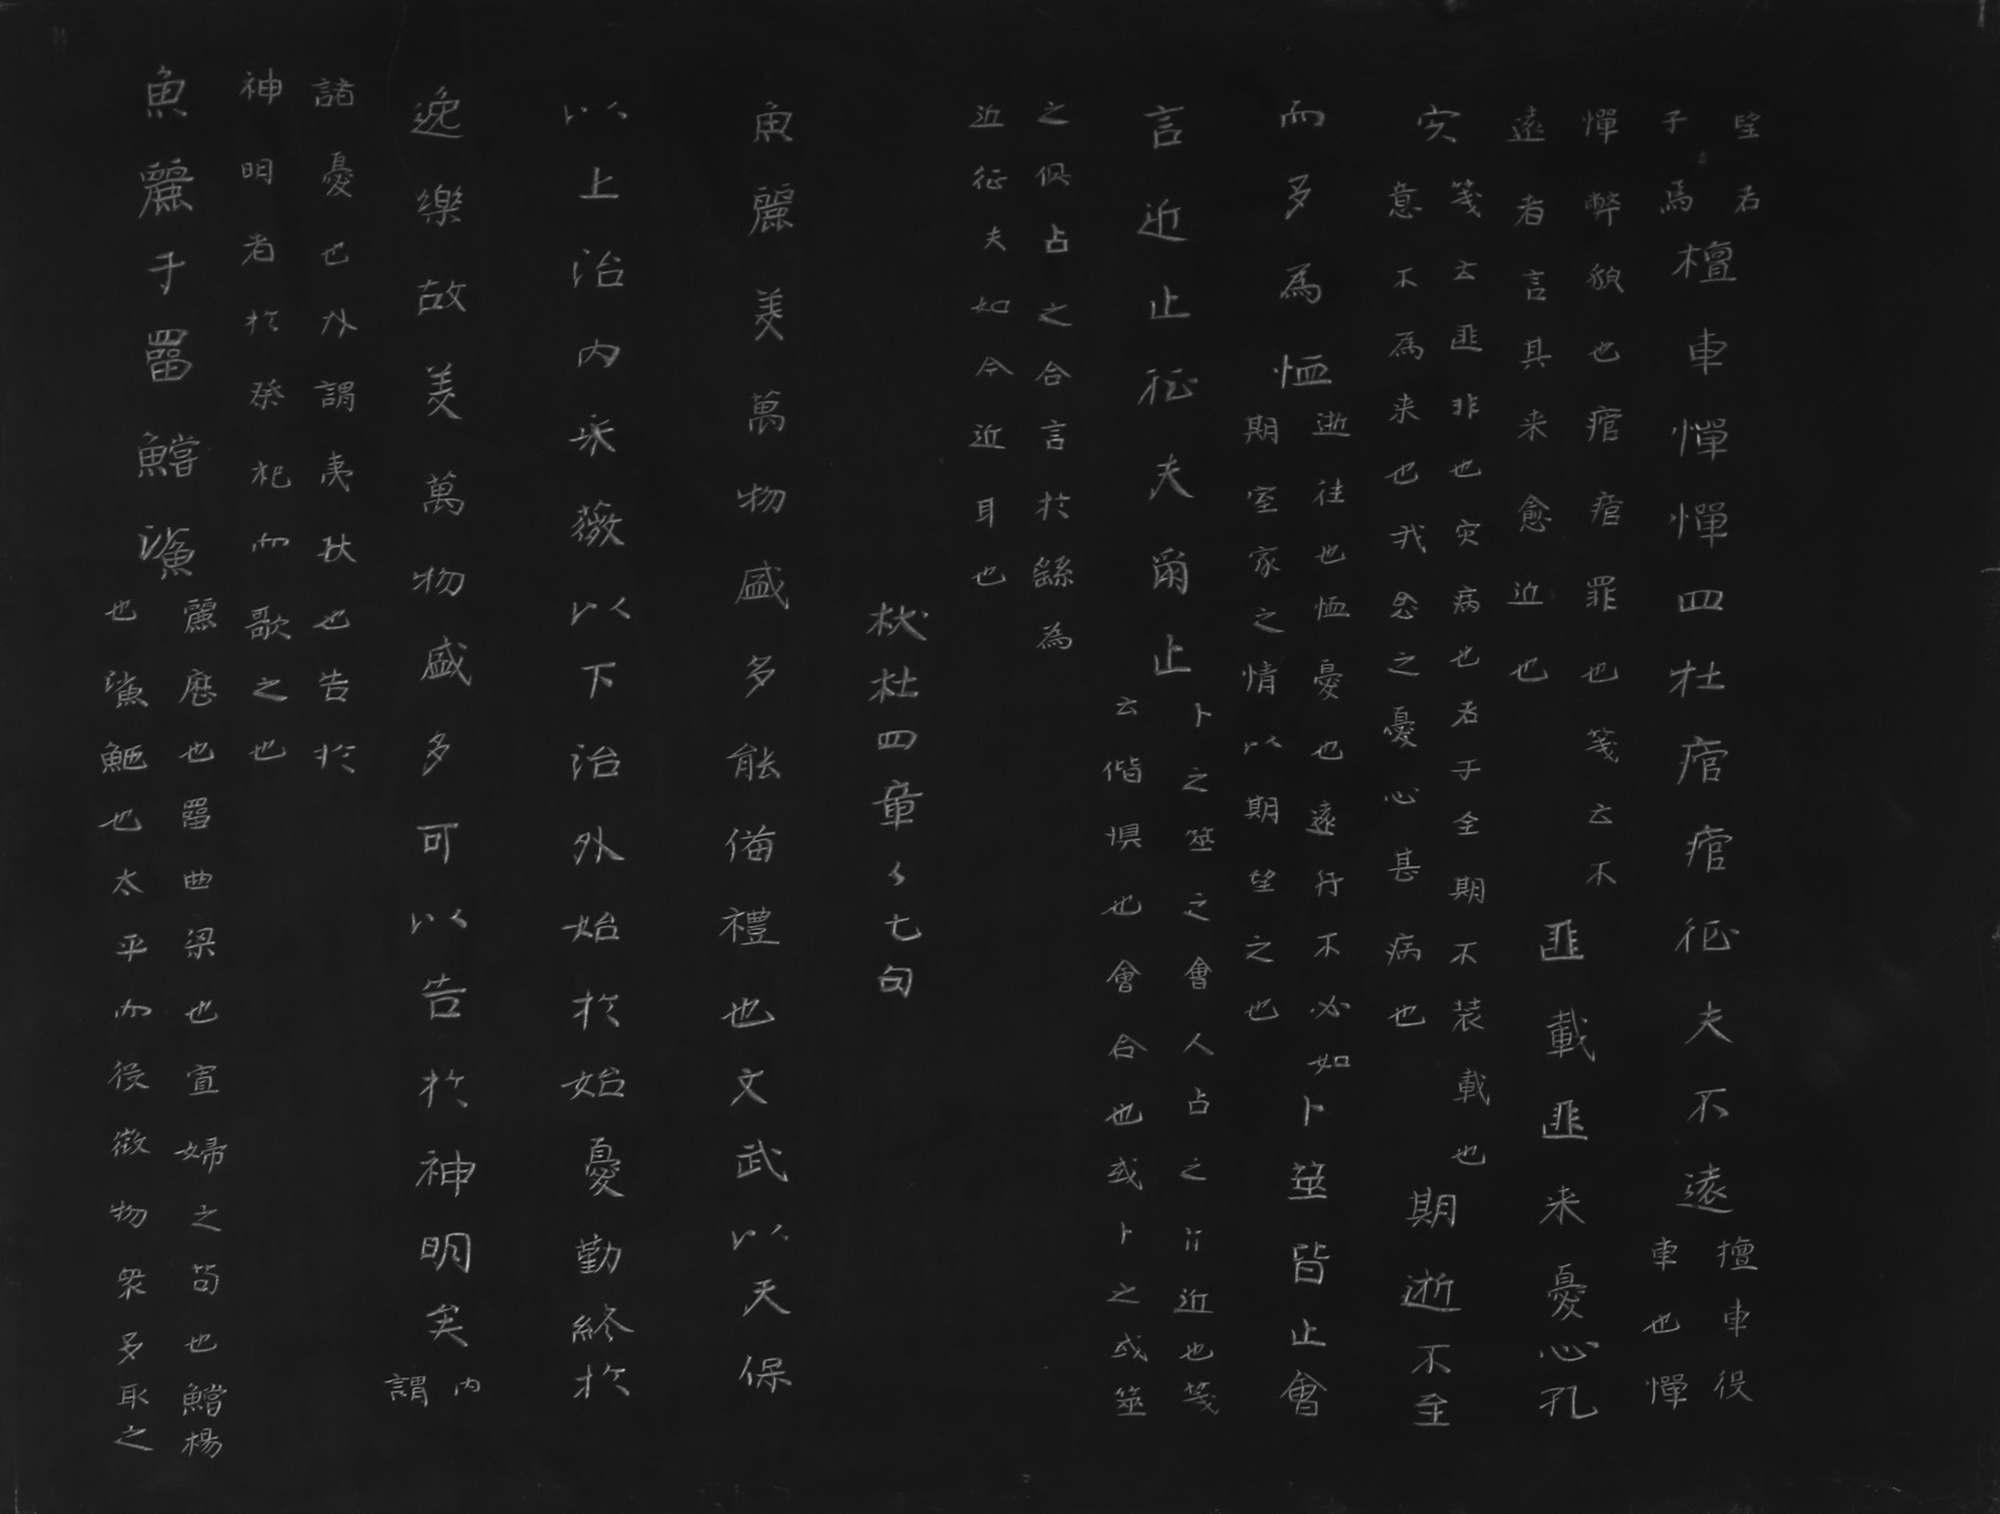 望者
子焉
檀車幝幝四杜痯痯征夫不遠
檀車役
車也幝
幝弊皃也痯痯罪也箋云不
遠者言其来愈近也
匪載匪来憂心孔
疚
箋云匪非也疚病也者于全期不装載也
意不為来也我念之憂心甚病也
期逝不至
而多為恤
逝往也恤憂也遠行不必如
期室家之情以期望之也
卜筮皆止會
言近止征夫爾止
卜之筮之會人占之 近也箋
云偕惧也會合也或卜之或筮
之俱占之合言於繇為
近征夫如今近耳也
杕杜四章々七句
魚麗美萬物盛多能備禮也文武以天保
以上治内采薇以下治外始於始憂勤終於
逸樂故美萬物盛多可以告於神明矣
内
謂
諸憂也外謂夷狄也告於
神明者於祭祀而歌之也
魚麗于罶鱨鯊
麗歷也罶曲梁也宣婦之笱也鱨楊
也鯊鮑也太平而後微物衆多取之